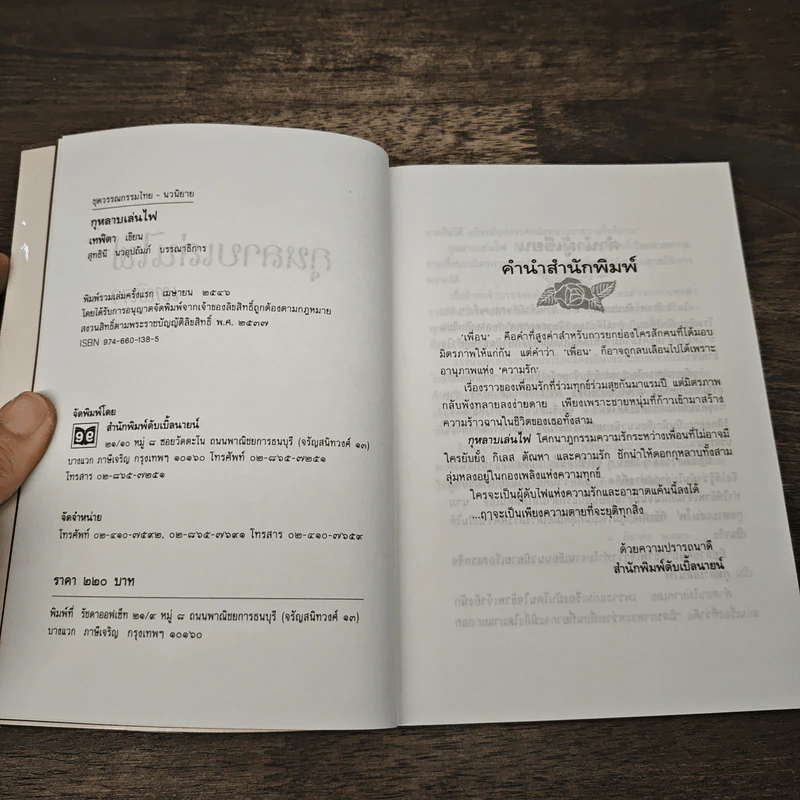 ชุดวรรณกรรมไทย - นวนิยาย
กุหลาบเล่นไฟ
เทพิตา เขียน
สุทธินี นวอุปถัมภ์ บรรณาธิการ
พิมพ์รวมเล่มครั้งแรก เมษายน ๒๕๔๖
โดยได้รับการอนุญาตจัดพิมพ์จากเจ้าของลิขสิทธิ์ถูกต้องตามกฎหมาย
สงวนสิทธิ์ตามพระราชบัญญัติลิขสิทธิ์ พ.ศ. ๒๕๓๗
ISBN 974-660-138-5
จัดพิมพ์โดย
สำนักพิมพ์ดับเบิ้ลนายน์
๒๑/๑๐ หมู่ ๘ ซอยวัดตะโน ถนนพาณิชยการธนบุรี (จรัญสนิทวงศ์ ๑๓)
บางแวก ภาษีเจริญ กรุงเทพฯ ๑๐๑๖๐ โทรศัพท์ ๐๒-๘๖๕-๗๒๕๑
โทรสาร ๐๒-๘๖๕-๗๒๕๑
จัดจำหน่าย
โทรศัพท์ ๐๒-๔๑๐-๗๕๙๒, ๐๒-๘๖๕-๗๖๙๑ โทรสาร ๐๒-๔๑๐-๗๖๕๙
ราคา ๒๒๐ บาท
พิมพ์ที่ รัชดาออฟเซ็ท ๒๑/๙ หมู่ ๘ ถนนพาณิชยการธนบุรี (จรัญสนิทวงศ์ ๑๓)
บางแวก ภาษีเจริญ กรุงเทพฯ ๑๐๑๖๐
คำนำสำนักพิมพ์
'เพื่อน' คือคำที่สูงค่าสำหรับการยกย่องใครสักคนที่ได้มอบ
มิตรภาพให้แก่กัน แต่คำว่า 'เพื่อน' ก็อาจถูกลบเลือนไปได้เพราะ
อานุภาพแห่ง 'ความรัก'
เรื่องราวของเพื่อนรักที่ร่วมทุกข์ร่วมสุขกันมาแรมปี แต่มิตรภาพ
กลับพังทลายลงง่ายดาย เพียงเพราะชายหนุ่มที่ก้าวเข้ามาสร้าง
ความร้าวฉานในชีวิตของเธอทั้งสาม
กุหลาบเล่นไฟ โศกนาฏกรรมความรักระหว่างเพื่อนที่ไม่อาจมี
ใครยับยั้ง กิเลส ตัณหา และความรัก ชักนำให้ดอกกุหลาบทั้งสาม
ลุ่มหลงอยู่ในกองเพลิงแห่งความทุกข์
ใครจะเป็นผู้ดับไฟแห่งความรักและอาฆาตแค้นนี้ลงได้
...ฤาจะเป็นเพียงความตายที่จะยุติทุกสิ่ง
ด้วยความปรารถนาดี
สำนักพิมพ์ดับเบิ้ลนายน์